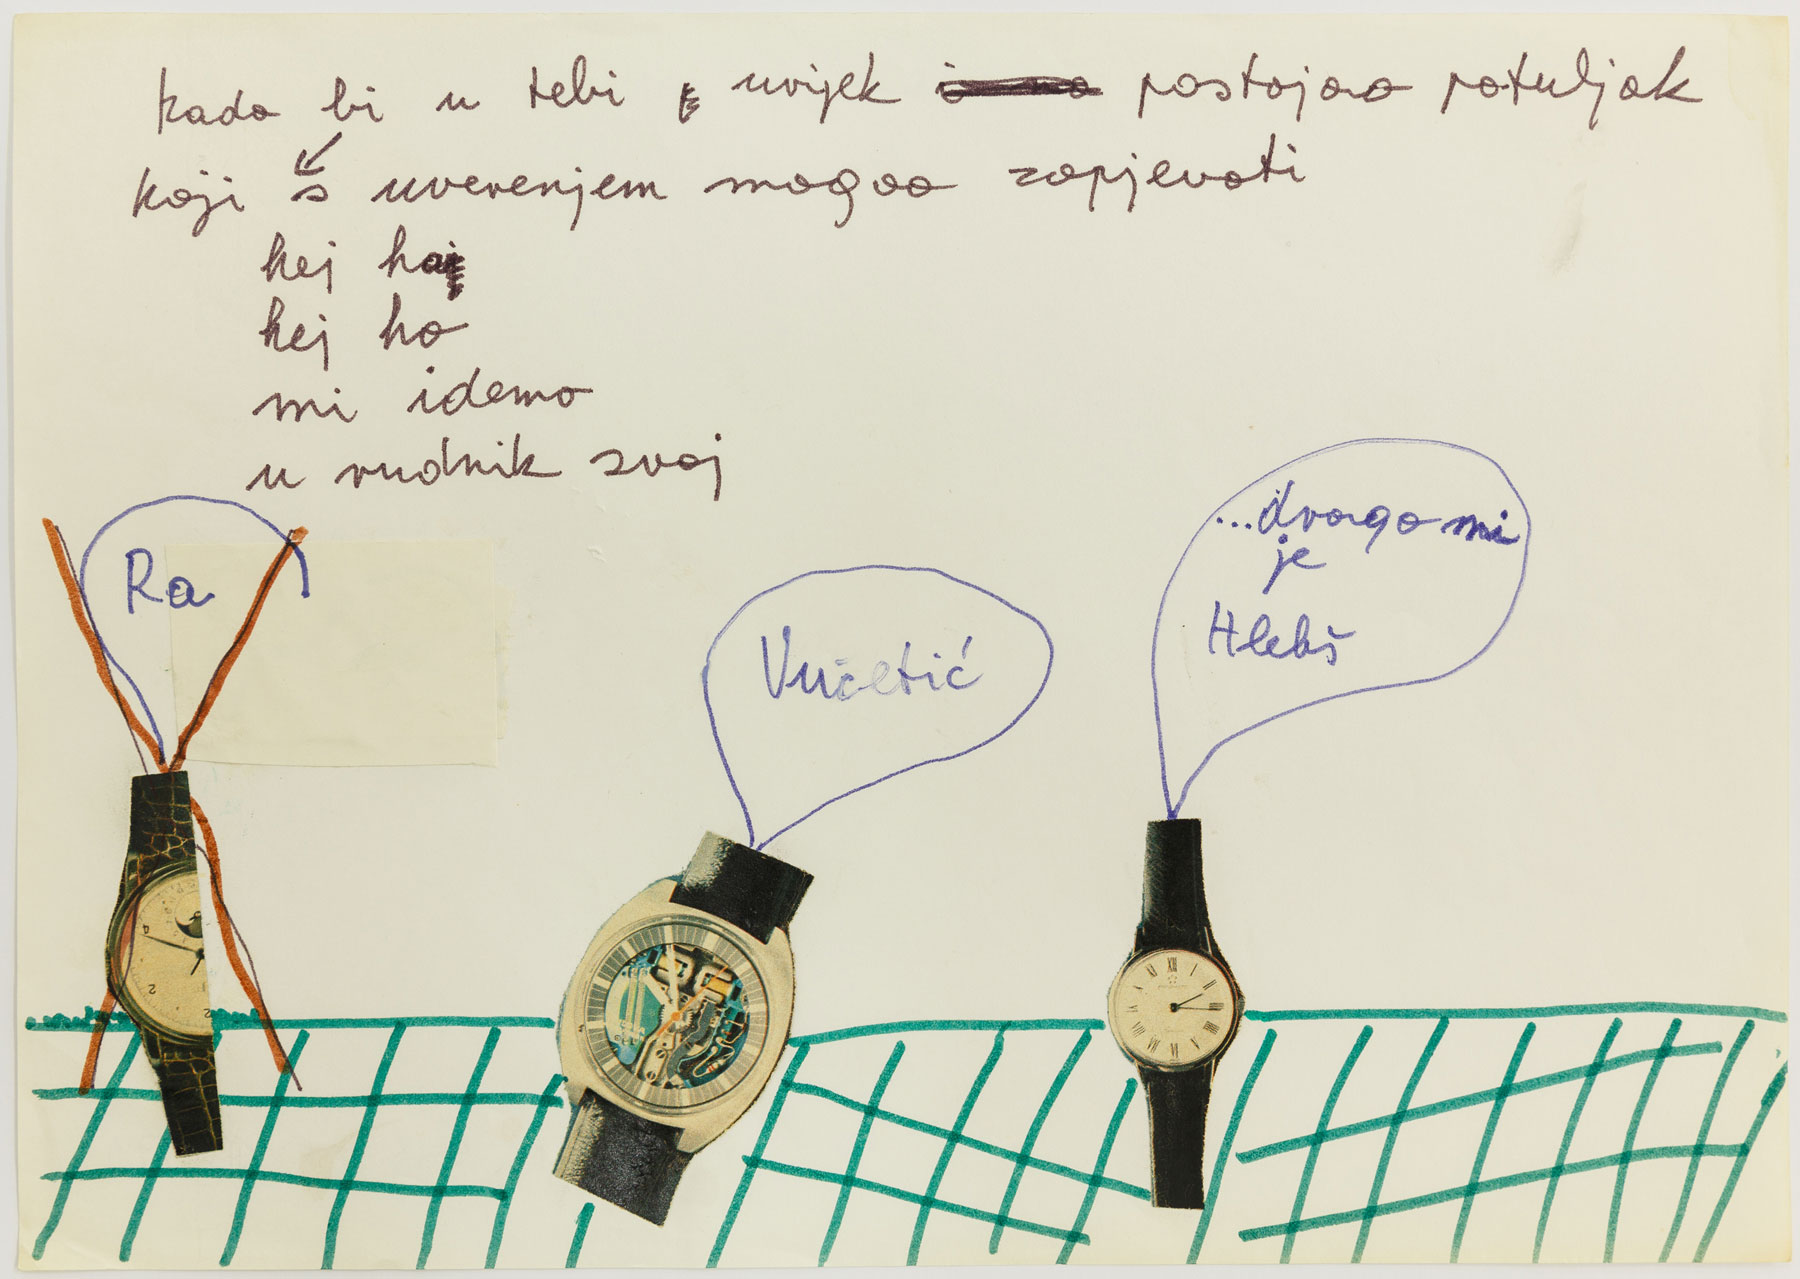 kada bi u tebi uvijek postojao patuljak
koji s uverenjem mogao zapjevati
hej haj
hej ho
mi idemo
u rudnik svoj
Ra
Vučetić
...drago mi
je
Hlebš